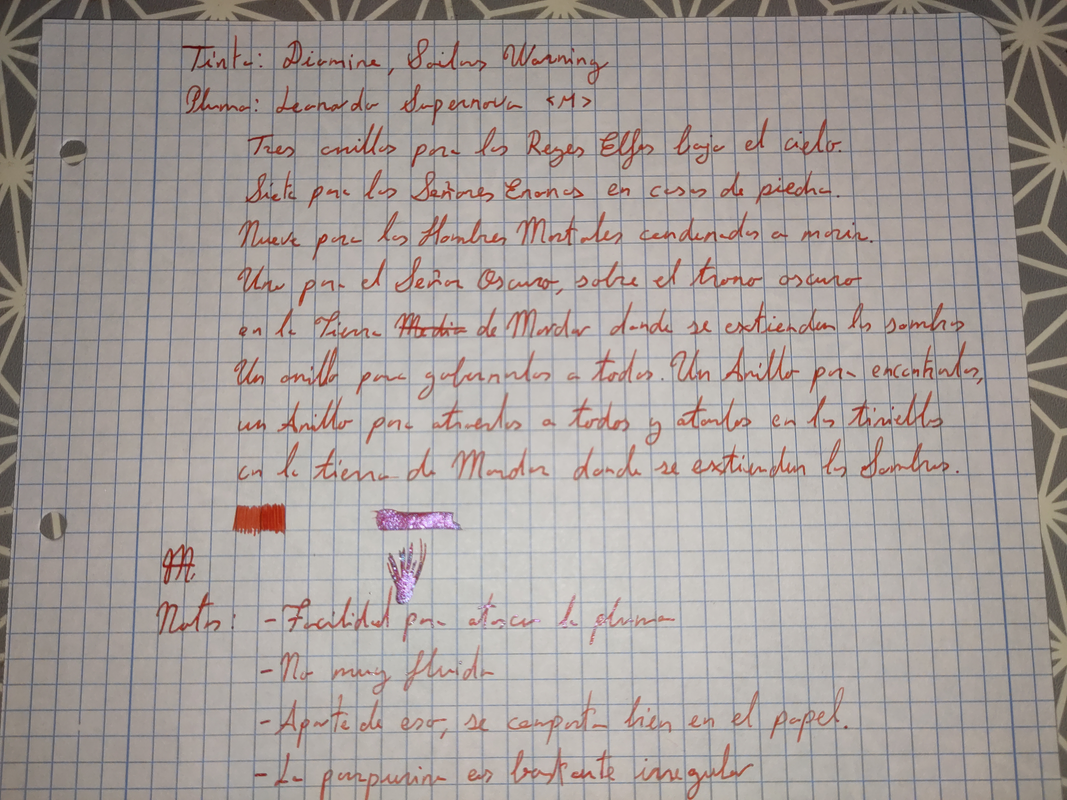 Tinta: Diamine, Sailors Warning
Pluma: Leonardo Supernova <M>
Tres anillos para los Reyes Elfos bajo el cielo.
Siete para los Señores Enanos en casas de piedra.
Nueve para los Hombres Mortales condenados a morir.
Uno para el Señor Oscuro, sobre el trono oscuro
en la Tierra Media de Mordor donde se extienden las sombras
Un anillo para gobernarlos a todos. Un Anillo para encontrarlos,
un Anillo para atraerlos a todos y atarlos en las tinieblas
en la tierra de Mordor donde se extienden las Sombras.
Notas: - Facilidad para atascar la pluma
- No muy fluida
- Aparte de eso, se comporta bien en el papel.
- La purpurina es bastante irregular